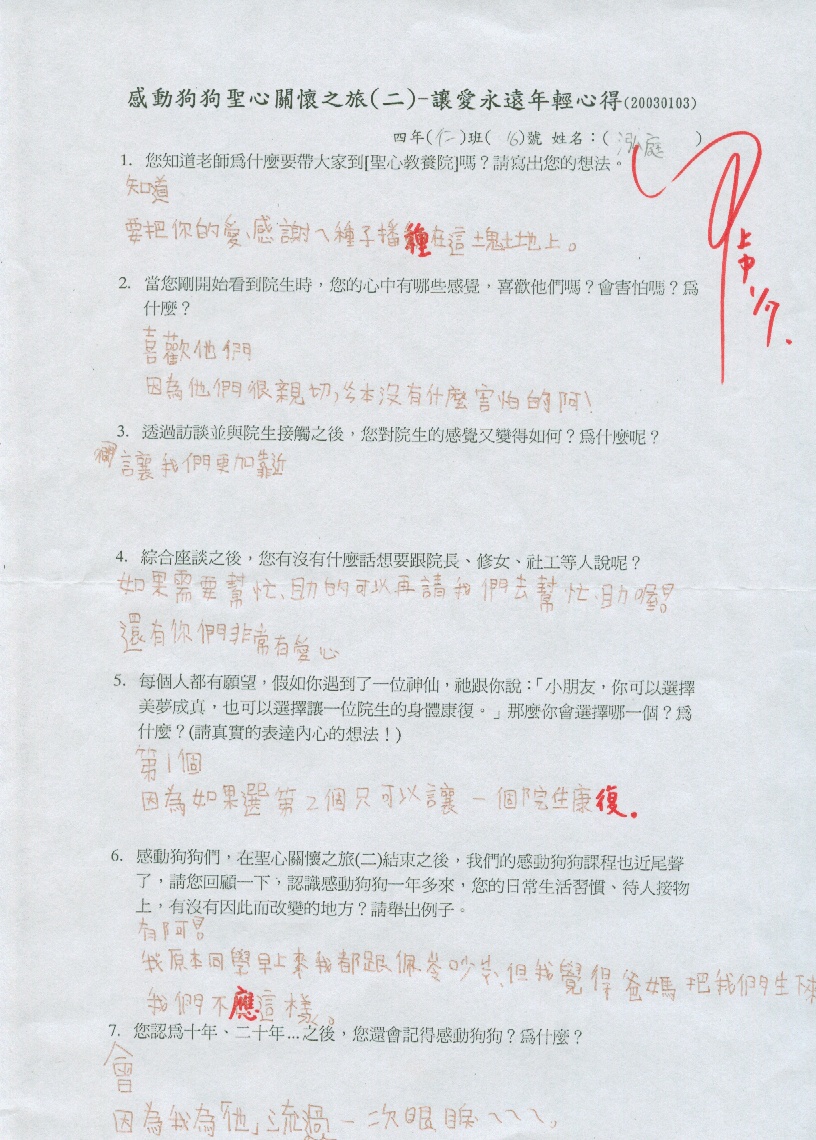 感動狗狗聖心關懷之旅(二)-讓愛永遠年輕心得(20030103)
四年(仁)班( 16)號 姓名：( 泓庭 )
1. 您知道老師為什麼要帶大家到[聖心教養院]嗎？請寫出您的想法。
知道
要把你的愛、感謝ㄟ種子播種在這塊土地上。
甲上
中
1/7.
2. 當您剛開始看到院生時，您的心中有哪些感覺，喜歡他們嗎？會害怕嗎？為
什麼？
喜歡他們
因為他們很親切，本沒有什麼害怕的阿！
3. 透過訪談並與院生接觸之後，您對院生的感覺又變得如何？為什麼呢？
讓我們更加靠近
4. 綜合座談之後，您有沒有什麼話想要跟院長、修女、社工等人說呢？
如果需要幫忙、助的可以再請我們去幫忙、助喔！
還有你們非常有愛心
5. 每個人都有願望，假如你遇到了一位神仙，祂跟你說：「小朋友，你可以選擇
美夢成真，也可以選擇讓一位院生的身體康復。」那麼你會選擇哪一個？為
什麼？(請真實的表達內心的想法！)
第1個
因為如果選第2個只可以讓一個院生康復。
6. 感動狗狗們，在聖心關懷之旅(二)結束之後，我們的感動狗狗課程也近尾聲
了，請您回顧一下，認識感動狗狗一年多來，您的日常生活習慣、待人接物
上，有沒有因此而改變的地方？請舉出例子。
有阿！
我原本同學早上來我都跟佩岑吵架、但我覺得爸媽把我們生下來
我們不應這樣。
7. 您認為十年、二十年...之後，您還會記得感動狗狗？為什麼？
會
因為我為「他」流過一次眼淚ㄟㄟㄟ。